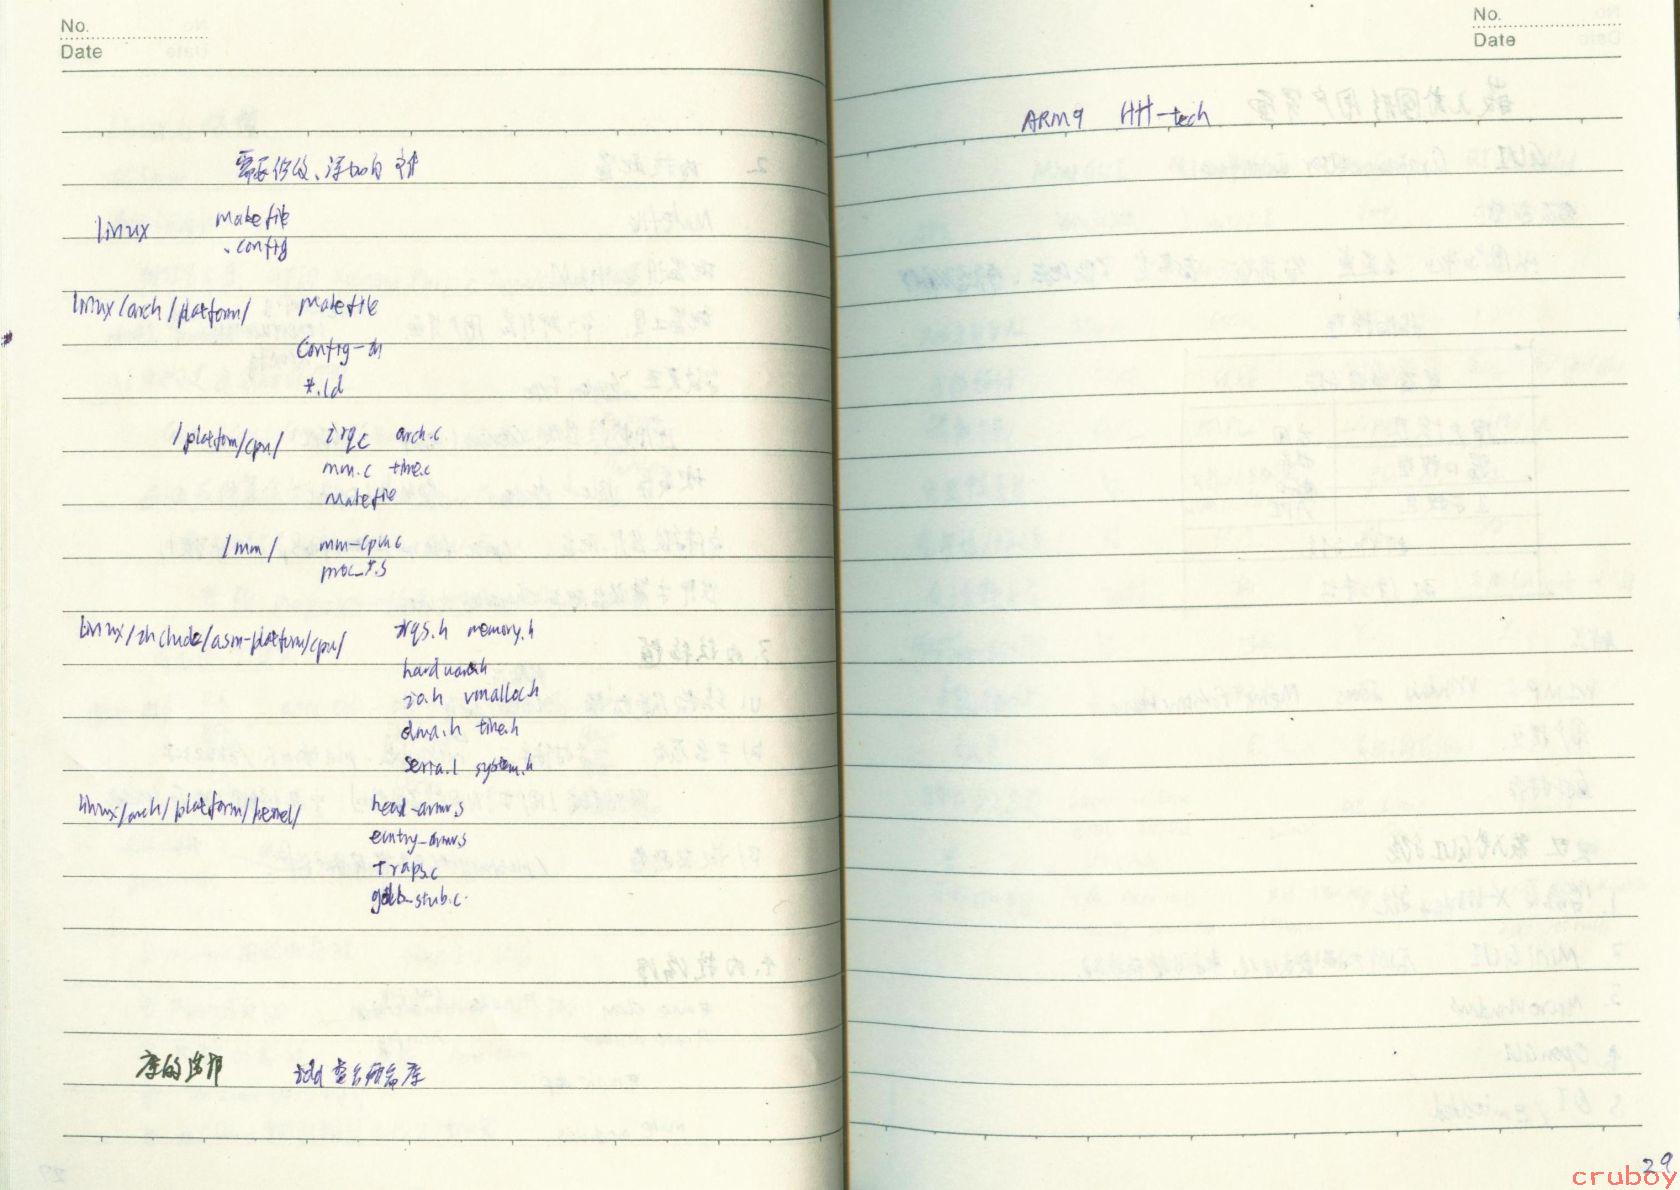 No.
Date
需要修改、添加的文件
linux makefile
.config
linux/arch/platform/ makefile
Config-in
*.ld
/platfom/cpu/ irq.c arch.c
mm.c time.c
makefile
/mm/ mm-cpu.c
proc_*.s
linux/include/asm-platform/cpu/ irqs.h memory.h
hardware.h
io.h vmalloc.h
dma.h time.h
seria.l system.h
linux/arch/platform/kernel/ head_armv.s
entry_armv.s
traps.c
gdb_stub.c
库的选择 ldd 查看所需库
No.
Date
ARM9 HH-tech
29
cruboy